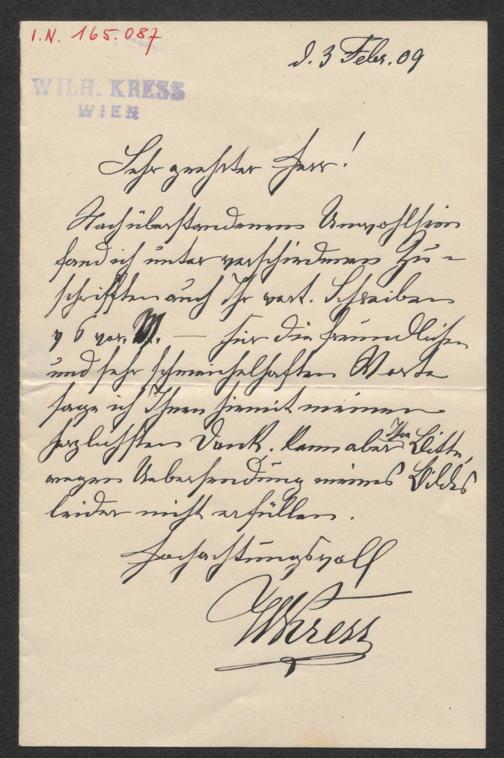 I.N. 165.087
d. 3 Febr. 09
WILH. KRESS
WIEN
Sehr geehrter Herr!
Nach überstandenem Unwohlsein
fand ich unter verschiedenen Zu-
schriften auch Ihr wert. Schreiben
v 6 vor. M. — Für die freundlichen
und sehr schmeichelhaften Worte
sage ich Ihnen hiemit meinen
herzlichsten Dank. Kann aber Ihre Bitte,
wegen Uebersendung meines Bildes
leider nicht erfüllen.
Hochachtungsvoll
WKress